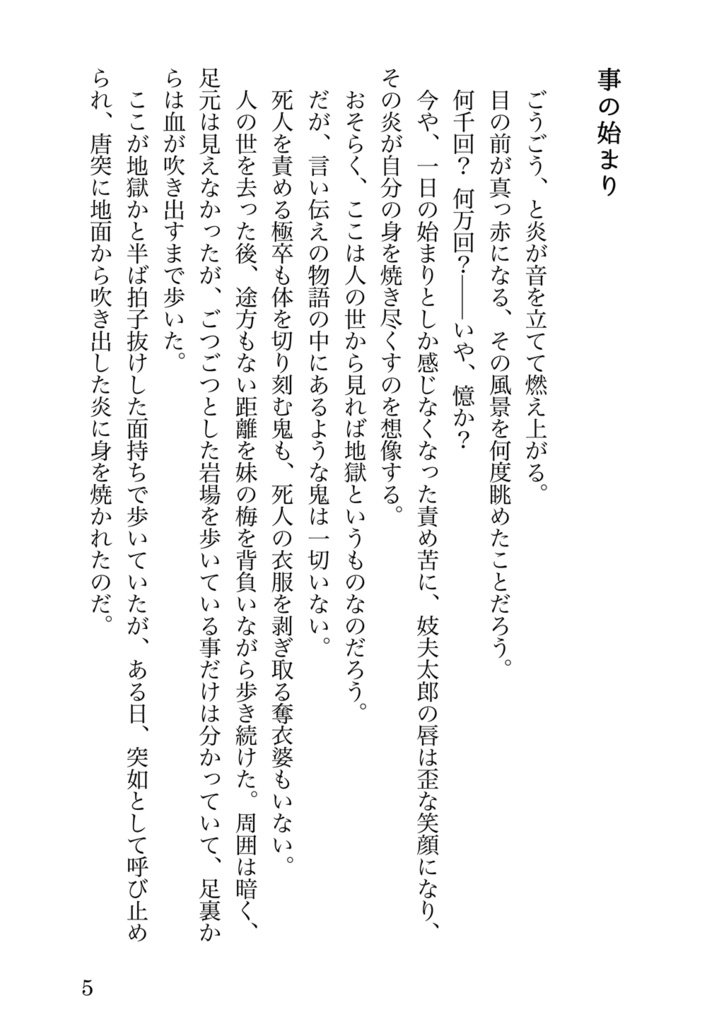 事の始まり
ごうごう、と炎が音を立てて燃え上がる。
目の前が真っ赤になる、その風景を何度眺めたことだろう。
何千回？ 何万回？――いや、憶か？
今や、一日の始まりとしか感じなくなった責め苦に、妓夫太郎の唇は歪な笑顔になり、
その炎が自分の身を焼き尽くすのを想像する。
おそらく、ここは人の世から見れば地獄というものなのだろう。
だが、言い伝えの物語の中にあるような鬼は一切いない。
死人を責める極卒も体を切り刻む鬼も、死人の衣服を剥ぎ取る奪衣婆もいない。
人の世を去った後、途方もない距離を妹の梅を背負いながら歩き続けた。周囲は暗く、
足元は見えなかったが、ごつごつとした岩場を歩いている事だけは分かっていて、足裏か
らは血が吹き出すまで歩いた。
ここが地獄かと半ば拍子抜けした面持ちで歩いていたが、ある日、突如として呼び止め
られ、唐突に地面から吹き出した炎に身を焼かれたのだ。
5